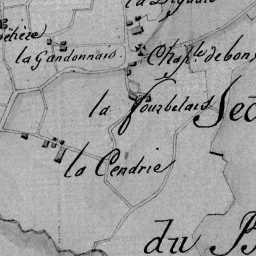 la Gandonnais
Chap.le de bon
la Fourbelais
Sec
la Cendrie
du